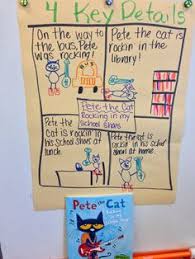 4 Key Details
On the way to
the bus, Pete
was rocking!
Pete the cat is
rockin in the
library!
Pete the Cat
Rocking in my
School Shoes
Pete the
cat is rockin in
his School Shoes at
lunch.
Pete the cat is
rockin in his School
Shoes at home.
Pete the Cat